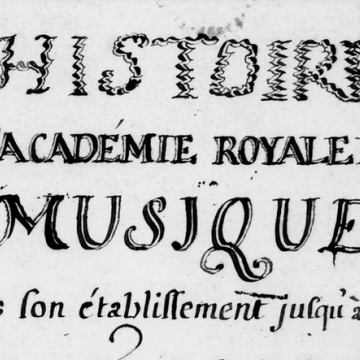 HISTOIRE
ACADÉMIE ROYALE
MUSIQUE
son établissement jusqu'à